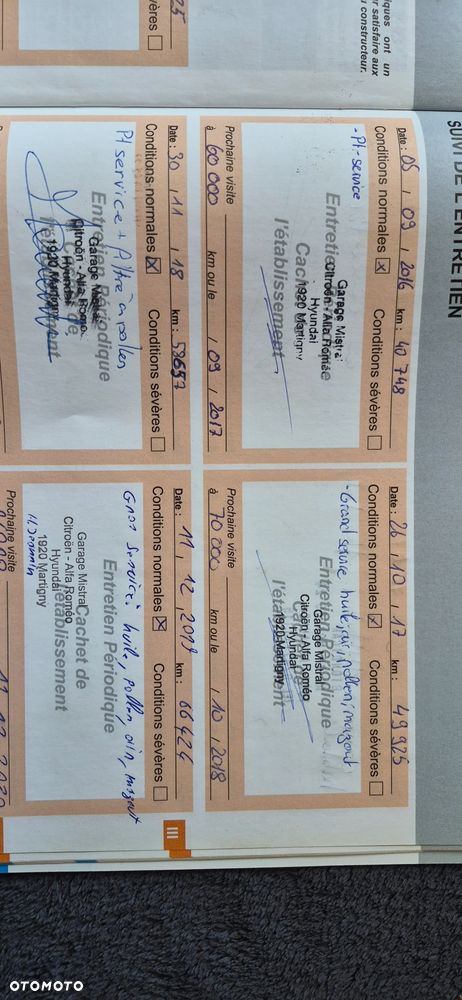 SUIVI DE L'ENTRETIEN
iques ont un
r satisfaire aux
constructeur.
25
sévères
Date : 05 / 09 / 2016 km : 40 748
Conditions normales ☒ Conditions sévères ☐
- Pt-service
Entretien Périodique
Cachet de
l'établissement
Garage Mistral
Citroën - Alfa Roméo
Hyundai
1920 Martigny
Prochaine visite
à 60 000 km ou le / 09 / 2017
Date : 26 / 10 / 17 km : 49 925
Conditions normales ☒ Conditions sévères ☐
- Grand service huile, air, pollen, mazout
Entretien Périodique
Cachet de
l'établissement
Garage Mistral
Citroën - Alfa Roméo
Hyundai
1920 Martigny
Prochaine visite
à 70 000 km ou le / 10 / 2018
Date : 30 / 11 / 18 km : 58657
Conditions normales ☒ Conditions sévères ☐
Pt service + filtre à pollen
Entretien Périodique
Cachet de
l'établissement
Garage Mistral
Citroën - Alfa Roméo
Hyundai
1920 Martigny
Date : 11 / 12 / 2019 km : 66424
Conditions normales ☒ Conditions sévères ☐
Gros service huile, pollen, air, mazout
Entretien Périodique
Cachet de
l'établissement
Garage Mistral
Citroën - Alfa Roméo
Hyundai
1920 Martigny
Prochaine visite
III
OTOMOTO